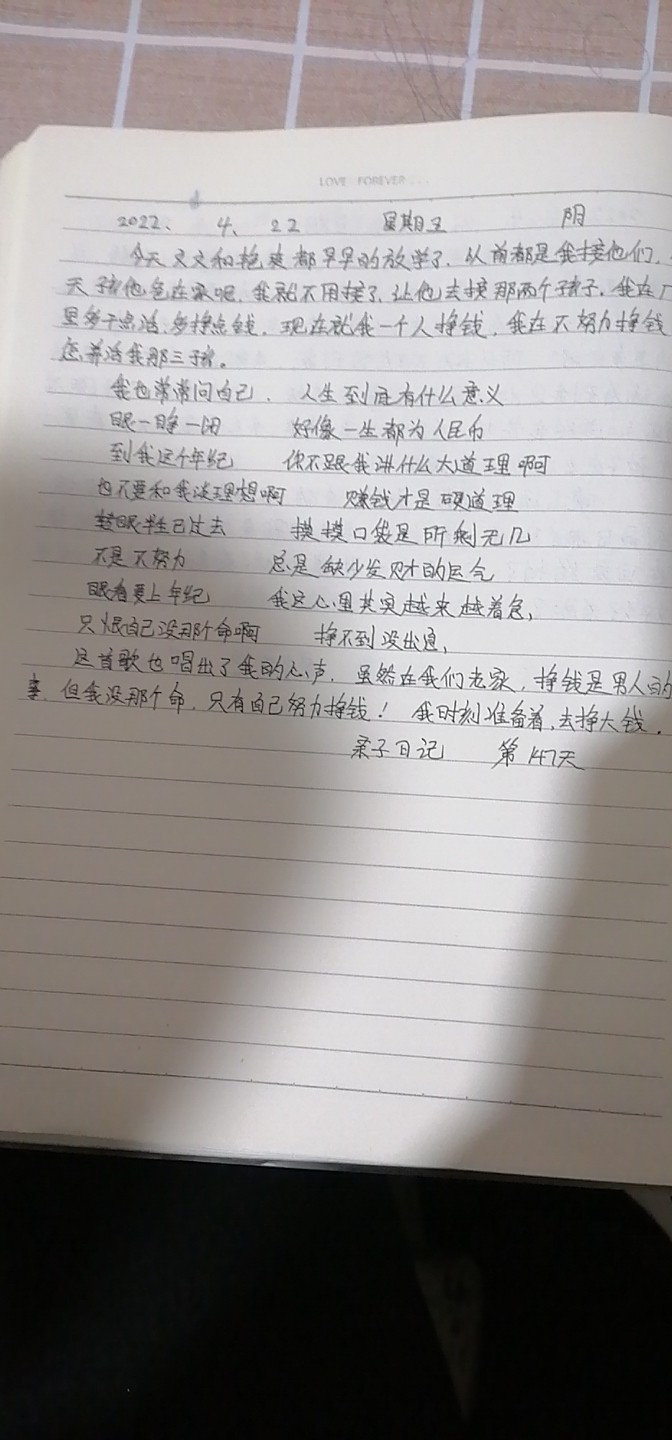 LOVE FOREVER...
2022、 4、 22 星期五 阴
今天文文和艳爽都早早的放学了.从前都是我接他们.
天孩他爸在家呢.我就不用接了.让他去接那两个孩子.我在厂
里多干点活.多挣点钱.现在就我一个人挣钱.我在不努力挣钱
怎养活我那三孩.
我也常常问自己. 人生到底有什么意义
眼一睁一闭 好像一生都为人民币
到我这个年纪 你不跟我讲什么大道理啊
也不要和我谈理想啊 赚钱才是硬道理
转眼半生已过去 摸摸口袋是所剩无几
不是不努力 总是缺少发财的运气
眼看要上年纪 我这心里其实越来越着急,
只恨自己没那个命啊 挣不到没出息,
这首歌也唱出了我的心声.虽然在我们老家.挣钱是男人的
事.但我没那个命.只有自己努力挣钱! 我时刻准备着.去挣大钱.
子日记 第147天